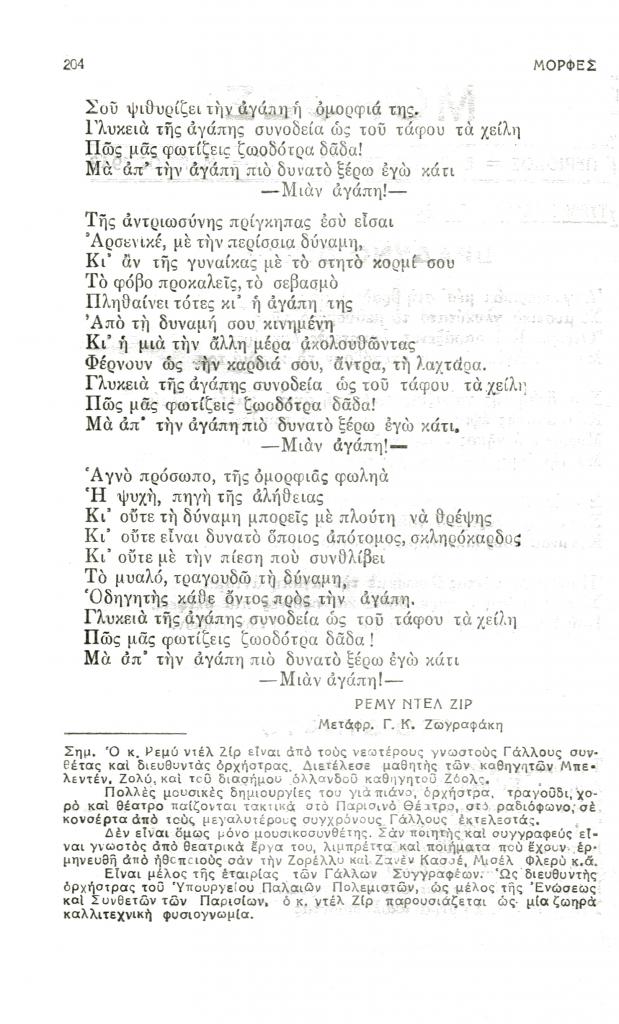 204
ΜΟΡΦΕΣ
Σοῦ ψιθυρίζει τὴν ἀγάπη ἡ ὀμορφιά της.
Γλυκειὰ τῆς ἀγάπης συνοδεία ὡς τοῦ τάφου τὰ χείλη
Πῶς μᾶς φωτίζεις ζωοδότρα δᾶδα!
Μὰ ἀπ' τὴν ἀγάπη πιὸ δυνατὸ ξέρω ἐγὼ κάτι
—Μιὰν ἀγάπη!—
Τῆς ἀντριωσύνης πρίγκηπας ἐσὺ εἶσαι
Ἀρσενικέ, μὲ τὴν περίσσια δύναμη,
Κι' ἂν τῆς γυναίκας μὲ τὸ στητὸ κορμί σου
Τὸ φόβο προκαλεῖς, τὸ σεβασμὸ
Πληθαίνει τότες κι' ἡ ἀγάπη της
Ἀπὸ τὴ δυναμή σου κινημένη
Κι' ἡ μιὰ τὴν ἄλλη μέρα ἀκολουθῶντας
Φέρνουν ὡς τὴν καρδιά σου, ἄντρα, τὴ λαχτάρα.
Γλυκειὰ τῆς ἀγάπης συνοδεία ὡς τοῦ τάφου τὰ χείλη
Πῶς μᾶς φωτίζεις ζωοδότρα δᾶδα!
Μὰ ἀπ' τὴν ἀγάπη πιὸ δυνατὸ ξέρω ἐγὼ κάτι.
—Μιὰν ἀγάπη!—
Ἁγνὸ πρόσωπο, τῆς ὀμορφιᾶς φωληὰ
Ἡ ψυχὴ, πηγὴ τῆς ἀλήθειας
Κι' οὔτε τὴ δύναμη μπορεῖς μὲ πλούτη νὰ θρέψῃς
Κι' οὔτε εἶναι δυνατὸ ὅποιος ἀπότομος, σκληρόκαρδος
Κι' οὔτε μὲ τὴν πίεση ποὺ συνθλίβει
Τὸ μυαλό, τραγουδῶ τὴ δύναμη,
Ὁδηγητὴς κάθε ὄντος πρὸς τὴν ἀγάπη.
Γλυκειὰ τῆς ἀγάπης συνοδεία ὡς τοῦ τάφου τὰ χείλη
Πῶς μᾶς φωτίζεις ζωοδότρα δᾶδα!
Μὰ ἀπ' τὴν ἀγάπη πιὸ δυνατὸ ξέρω ἐγὼ κάτι
—Μιὰν ἀγάπη!—
ΡΕΜΥ ΝΤΕΛ ΖΙΡ
Μετάφρ. Γ. Κ. Ζωγραφάκη
Σημ. Ὁ κ. Ρεμύ ντέλ Ζίρ εἶναι ἀπὸ τοὺς νεωτέρους γνωστοὺς Γάλλους συν-
θέτας καὶ διευθυντὰς ὀρχήστρας. Διετέλεσε μαθητὴς τῶν καθηγητῶν Μπε-
λεντέν, Ζολύ, καὶ τοῦ διασήμου ὁλλανδοῦ καθηγητοῦ Ζόολς.
Πολλὲς μουσικὲς δημιουργίες του γιὰ πιάνο, ὀρχήστρα, τραγοῦδι, χο-
ρὸ καὶ θέατρο παίζονται τακτικὰ στὸ Παρισινὸ Θέατρο, στὸ ραδιόφωνο, σὲ
κονσέρτα ἀπὸ τοὺς μεγαλυτέρους συγχρόνους Γάλλους ἐκτελεστάς.
Δὲν εἶναι ὅμως μόνο μουσικοσυνθέτης. Σὰν ποιητὴς καὶ συγγραφεύς εἶ-
ναι γνωστὸς ἀπὸ θεατρικὰ ἔργα του, λιμπρέττα καὶ ποιήματα ποὺ ἔχουν ἑρ-
μηνευθῆ ἀπὸ ἠθοποιοὺς σὰν τὴν Ζορέλλυ καὶ Ζανὲν Μισὲλ Φλερὺ κ.ἄ.
Εἶναι μέλος τῆς ἑταιρίας τῶν Γάλλων Συγγραφέων. Ὡς διευθυντὴς
ὀρχήστρας τοῦ Ὑπουργείου Παλαιῶν Πολεμιστῶν, ὡς μέλος τῆς Ἑνώσεως
καὶ Συνθετῶν τῶν Παρισίων, ὁ κ. ντέλ Ζίρ παρουσιάζεται ὡς μία ζωηρὰ
καλλιτεχνικὴ φυσιογνωμία.